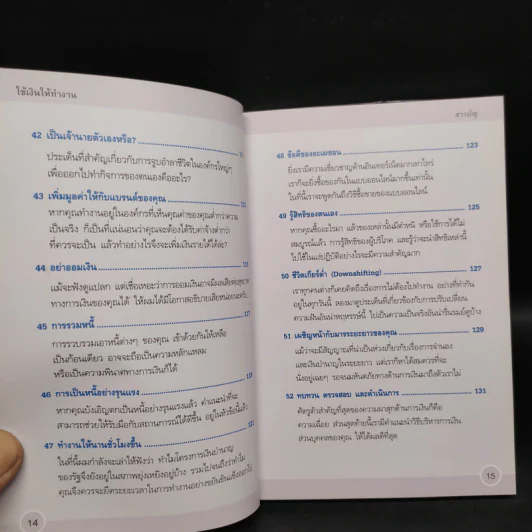 ใช้เงินให้ทำงาน
42 เป็นเจ้านายตัวเองหรือ?
ประเด็นที่สำคัญเกี่ยวกับการจูบอำลาชีวิตในองค์กรใหญ่ๆ
เพื่อออกไปทำกิจการของตนเองคืออะไร?
43 เพิ่มมูลค่าให้กับแบรนด์ของคุณ
หากคุณทำงานอยู่ในองค์กรที่เห็นคุณค่าของคุณต่ำกว่าความ
เป็นจริง ก็เป็นที่แน่นอนว่าคุณจะต้องได้รับค่าจ้างต่ำกว่า
ที่ควรจะเป็น แล้วทำอย่างไรจึงจะเพิ่มเงินรายได้ได้ล่ะ?
44 อย่าออมเงิน
แม้จะฟังดูแปลก แต่เชื่อเหอะว่าการออมเงินอาจมีผลเสียต่อ
ทางการเงินของคุณได้ ให้ผมได้มีโอกาสอธิบายเสียหน่อยนะครับ
45 การรวมหนี้
การรวบรวมเอาหนี้ต่างๆ ของคุณ เข้าด้วยกันให้เหลือ
เป็นก้อนเดียว อาจจะถือเป็นความหลักแหลม
หรือเป็นความพินาศทางการเงินก็ได้
46 การเป็นหนี้อย่างรุนแรง
หากคุณบังเอิญตกเป็นหนี้อย่างรุนแรงแล้ว คำแนะนำที่จะ
สามารถช่วยให้รับมือกับสถานการณ์ได้ดีขึ้น อยู่ในหัวข้อนี้แล้ว
47 ทำงานให้นานชั่วโมงขึ้น
ในที่นี้ผมกำลังจะเล่าให้ฟังว่า ทำไมโครงการเงินบำนาญ
ของรัฐจึงยังอยู่ในสภาพยุ่งเหยิงอยู่บ้าง รวมไปจนถึงว่าทำไม
คุณจึงควรจะยืดระยะเวลาในการทำงานอย่างขยันขันแข็งออกไป
14
สารบัญ
48 ช้อตีของอะเมซอน 123
ยิ่งเรามีความเชี่ยวชาญด้านอินเทอร์เน็ตมากเท่าไหร่
เราก็จะยิ่งซื้อของกันในแบบออนไลน์มากขึ้นเท่านั้น
ในที่นี้เราจะพูดกันถึงวิธีซื้อขายของแบบออนไลน์
49 รู้สิทธิของตนเอง 125
หากคุณซื้ออะไรมา แล้วของเหล่านั้นมีตำหนิ หรือใช้การได้ไม่
สมบูรณ์แล้ว การรู้สิทธิการผู้บริโภค และรู้ว่าจะนำสิทธิเหล่านี้
ไปใช้ในแง่ปฏิบัติอย่างไรจะมีความสำคัญมาก
50 ชีวิตเกียร์ต่ำ (Downshifting) 127
เราทุกคนต่างก็เคยคิดถึงเรื่องการไม่ต้องไปทำงาน อย่างที่ทำกัน
อยู่ในทุกวันนี้ ลองมาดูประเด็นที่เกี่ยวข้องกับการปรับเปลี่ยน
ความฝันอันน่าพฤหรรษ์นี้ ไปเป็นความเป็นจริงอันน่ารื่นรมย์ดูบ้าง
51 เผชิญหน้ากับมาจระยะยาวของคุณ 129
แม้ว่าจะมีสัญญาณที่น่าเป็นห่วงเกี่ยวกับเรื่องการจำนอง
และเงินบำนาญในระยะยาว แต่เราก็หาได้สมควรที่จะ
นั่งอยู่เฉยๆ รอจนมหันตภัยทางด้านการเงินมาถึงตัวเราไม่
52 ทบทวน ตรวจสอบ และดำเนินการ 131
ศัตรูตัวสำคัญที่สุดของความผาสุกด้านการเงินก็คือ
ความเฉื่อย ส่วนสุดท้ายนี้เรามีคำแนะนำวิธีบริหารการเงิน
ส่วนบุคคลของคุณ ให้ได้ผลดีที่สุด
15